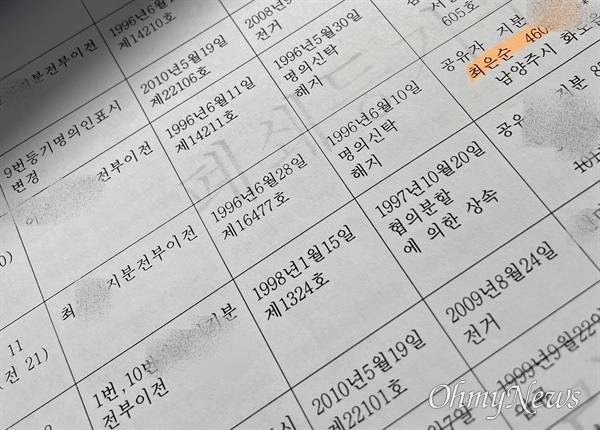 1996년6월1
제14210호
2008년9
전거
605호
공유자 지분
최은순 460
남양주시 화도읍
지분전부이전
2010년5월19일
제22106호
1996년5월30일
명의신탁
해지
9번등기명의인표시
변경
1996년6월11일
제14211호
1996년6월10일
명의신탁
해지
공유
지분 8
전부이전
1996년6월28일
제16477호
1997년10월20일
협의분할
에 의한 상속
최
지분전부이전
1998년1월15일
제1324호
2009년8월24일
전거
11
(전 21)
1번,10번
지분
전부이전
2010년5월19일
제22101호
1999년9월22일
OhmyNews